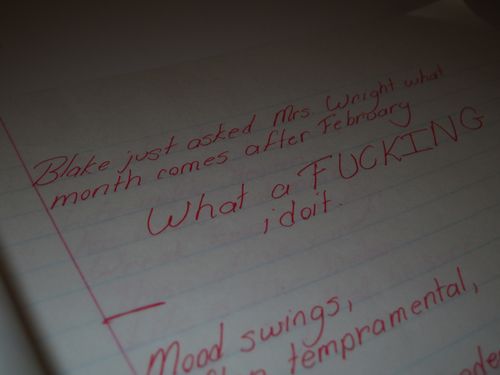 Blake just asked Mrs. Wright what
month comes after February
What a FUCKING
idoit.
Mood swings,
tempramental,